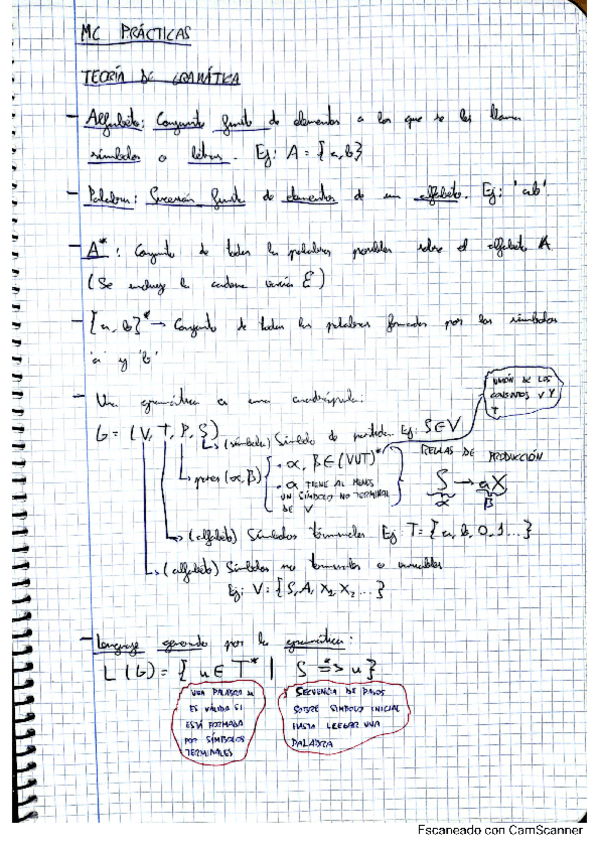 MC PRÁCTICAS
TEORÍA DE GRAMÁTICA
- Alfabeto: Conjunto finito de elementos a los que se les llama
símbolos o letras. Ej: A = {a,b}
- Palabra: Sucesión finita de elementos de un alfabeto. Ej: 'ab'.
- A* : Conjunto de todas las palabras posibles sobre el alfabeto A
(Se incluye la cadena vacía ε)
- {a, b}* → Conjunto de todas las palabras formadas por los símbolos
'a' y 'b'
- Una gramática es una cuádrupla:
UNIÓN DE LOS
CONJUNTOS V Y
T
G = (V, T, P, S)
(símbolo) Símbolo de partida. Ej: S∈V
pares (α, β) { · α, β ∈ (VUT)*
· α TIENE AL MENOS
UN SÍMBOLO NO TERMINAL
DE V
REGLAS DE PRODUCCIÓN
S → aX
α β
(alfabeto) Símbolos terminales Ej: T = {a, b, 0, 1 ...}
(alfabeto) Símbolos no terminales o variables
Ej: V = {S, A, X1, X2 ...}
- Lenguaje generado por la gramática:
L(G) = { u ∈ T* | S *=> u}
UNA PALABRA u
ES VÁLIDA SI
ESTÁ FORMADA
POR SÍMBOLOS
TERMINALES
SECUENCIA DE PASOS
SOBRE SÍMBOLO INICIAL
HASTA LLEGAR UNA
PALABRA
Escaneado con CamScanner